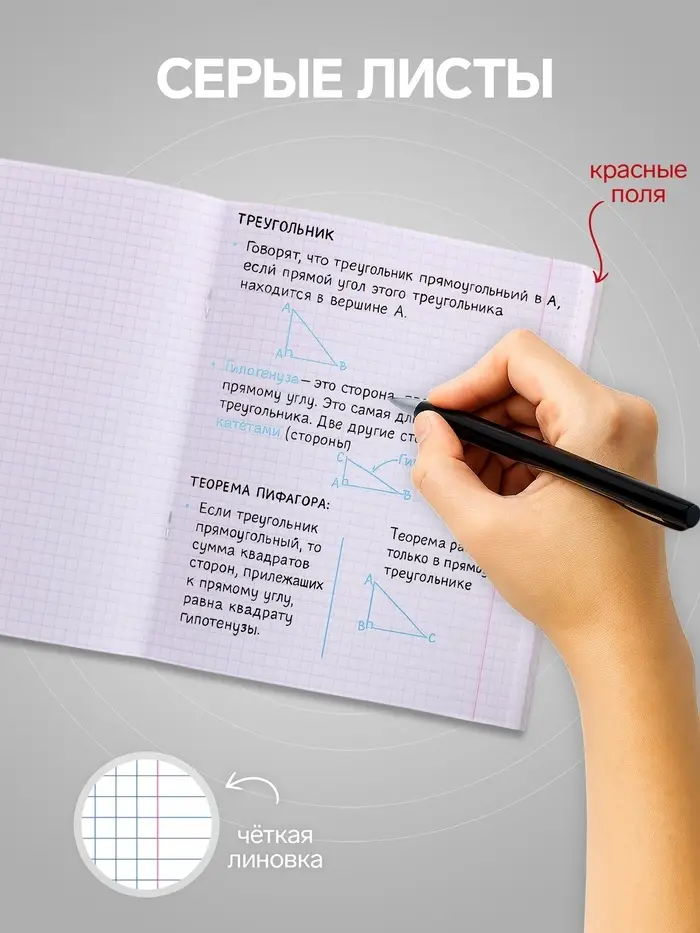 СЕРЫЕ ЛИСТЫ
красные
поля
ТРЕУГОЛЬНИК
Говорят, что треугольник прямоугольный в А,
если прямой угол этого треугольника
находится в вершине А.
А
А
В
Гипотенуза – это сторона
прямому углу. Это самая
треугольника. Две другие
катетами (стороны
С
А
В
ТЕОРЕМА ПИФАГОРА:
Если треугольник
прямоугольный, то
сумма квадратов
сторон, прилежащих
к прямому углу,
равна квадрату
гипотенузы.
Теорема
только в
треугольнике
А
В
С
чёткая
линовка